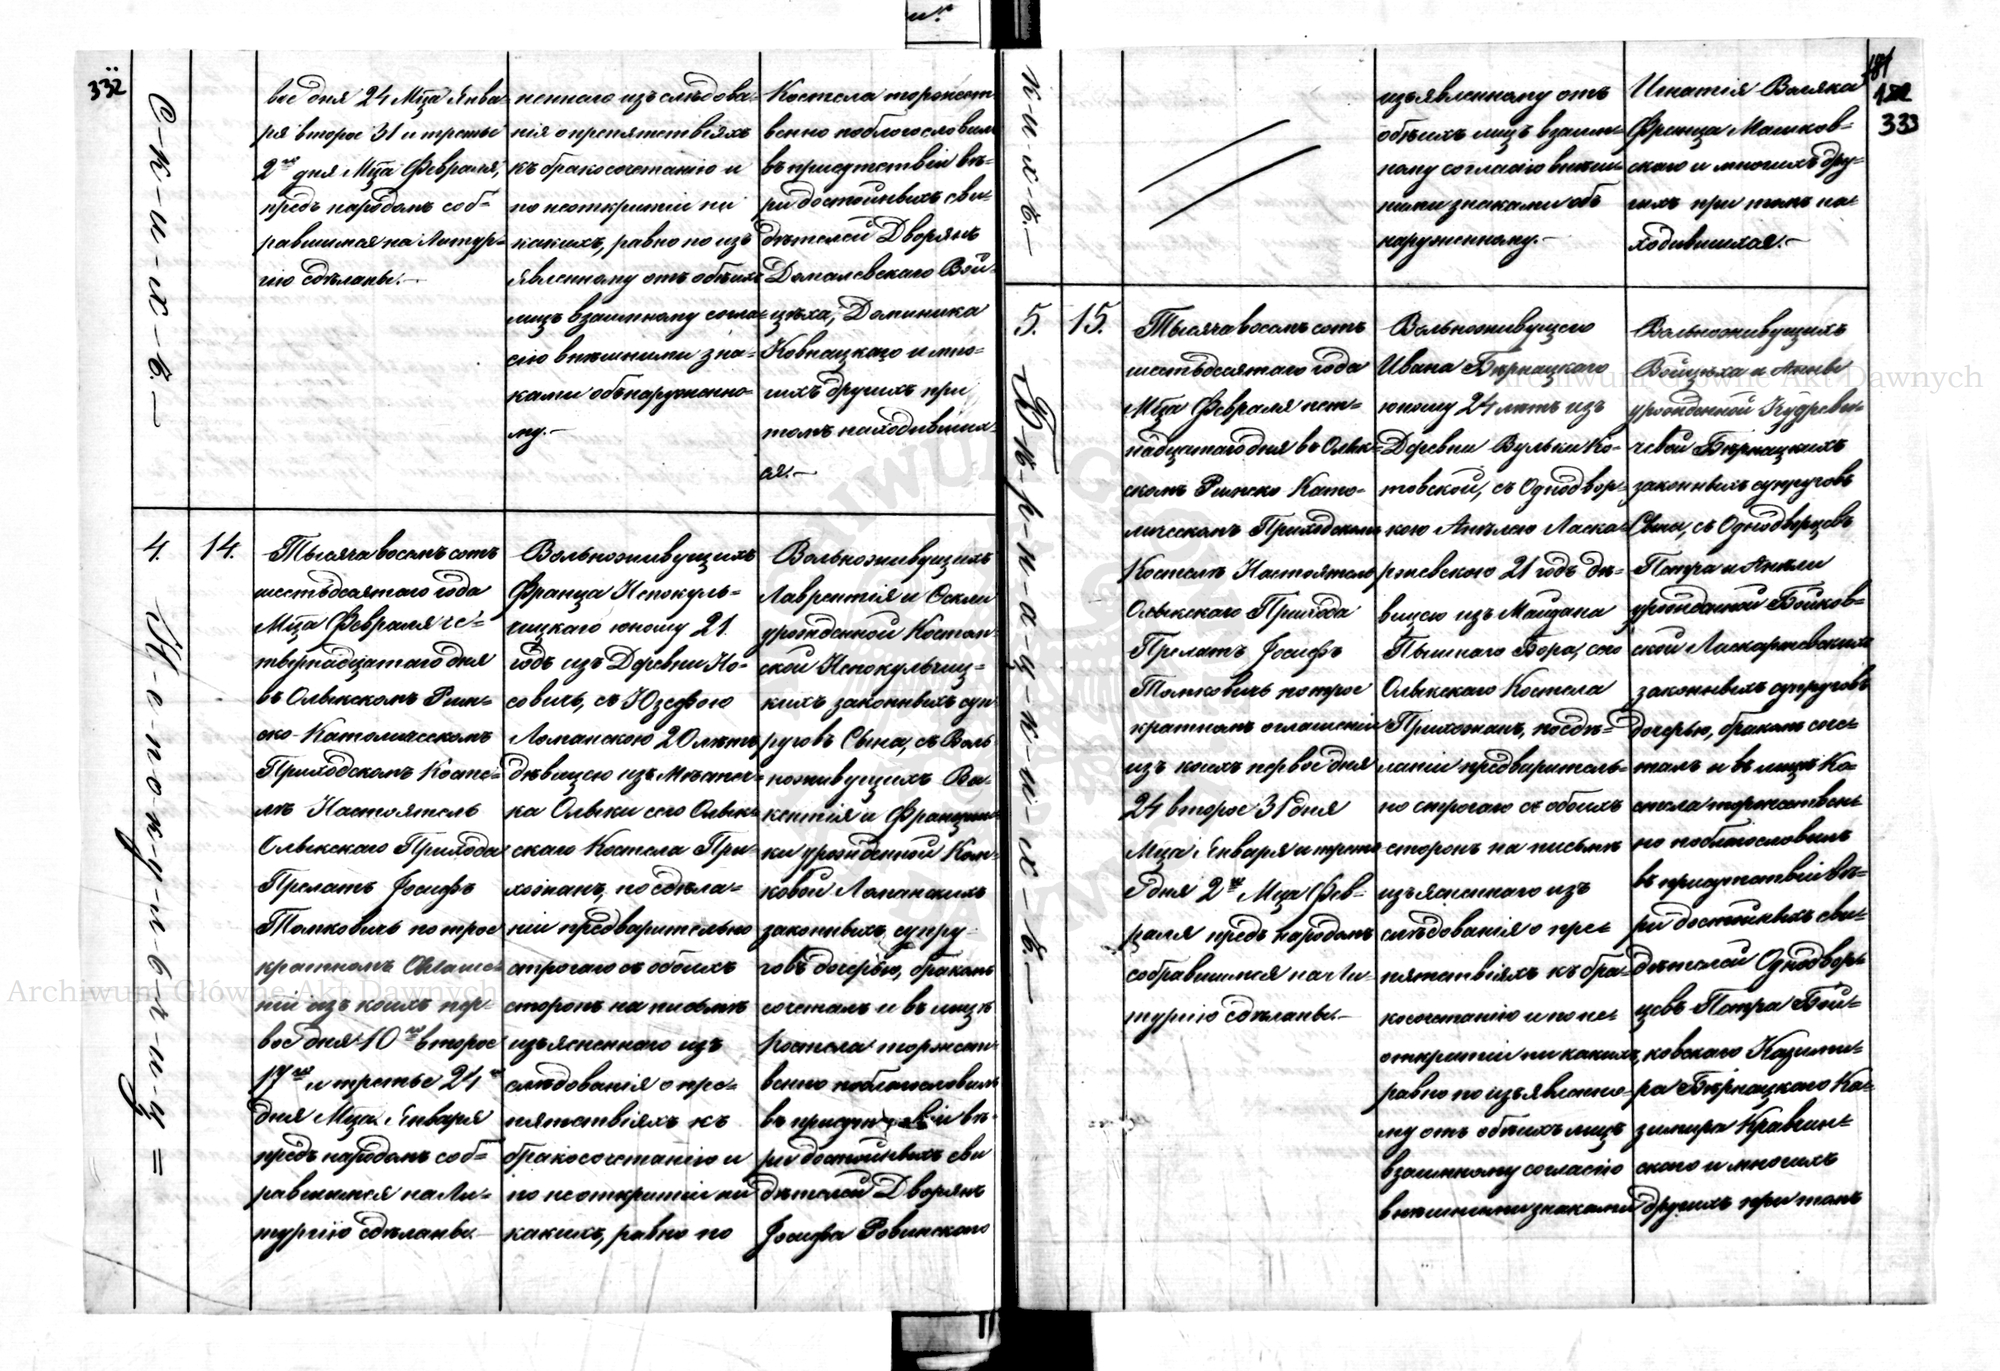 332
С-к-и-х-ъ.-
вое дня 24 Мца Янва-
ря второе 31 и третье
2го дня Мца Февраля,
предъ народомъ соб-
равшимся на Литур-
гію сдѣланы.-
неннаго изъ слѣдова-
нія о препятствіяхъ
къ бракосочетанію и
по неоткрытіи ни
какихъ, равно по изъ
явленному отъ обѣихъ
лицъ взаимному согла-
сію внѣшними зна-
ками обнаруженно-
му.-
Костела торжест-
венно поблагословилъ
въ присутствіи вѣ-
ри достойныхъ сви-
дѣтелей Дворянъ
Домалевскаго Вой-
цѣха, Доминика
Ковнацкаго и мно-
ихъ другихъ при
томъ находивших-
ся.-
4.
14.
Тысяча восемь сотъ
шестьдесятаго года
Мца Февраля че-
твернадцатаго дня
въ Олыкскомъ Рим-
ско-Католическомъ
Приходскомъ Косте-
лѣ Настоятель
Олыкскаго Прихода
Прелатъ Іосифъ
Томковичъ по трое
кратномъ Оглаше-
ніи изъ коихъ пер-
вое дня 10го второе
17го и третье 24го
дня Мца Января
предъ народомъ соб-
равшимся на Ли-
тургію сдѣланы.
Вольноживущихъ
Франца Непокуль-
чицкаго юношу 21
годъ изъ Деревни Но-
совичъ, съ Юзефою
Ломанскою 20 лѣтъ
дѣвицею изъ Мѣстеч-
ка Олыки сего Олык-
скаго Костела При-
хожанъ, по сдѣла-
ніи предварительно
строгаго съ обоихъ
сторонъ на письмѣ
изъясненнаго изъ
слѣдованія о пре-
пятствіяхъ къ
бракосочетанію и
по неоткрытіи ни
какихъ, равно по
Вольноживущихъ
Лаврентія и Оеклы
урожденной Костан-
ской Непокульчиц-
кихъ законныхъ суп
руговъ Сына, съ Воль
ноживущихъ Ви-
кентія и Францыш-
ки урожденной
Ломанскихъ
законныхъ супру-
говъ дочерью, бракомъ
сочеталъ и въ лицѣ
Костела торжест-
венно поблагословилъ
въ присутствіи вѣ-
ри достойныхъ сви
дѣтелей Дворянъ
Іосифа Ровинскаго
181
182
333
к-и-х-ъ.-
изъявленному отъ
обѣихъ лицъ взаим-
ному согласію внѣш-
ними знаками об
наруженному.-
Игнатія Воляка
Франца Машков-
скаго и многихъ дру-
гихъ при томъ на-
ходившихся.-
5.
15.
Б-ѣ-р-н-а-ц-к-и-х-ъ.-
Тысяча восемь сотъ
шестьдесятаго года
Мца Февраля пят-
надцатаго дня въ Олык-
скомъ Римско Като-
лическомъ Приходскомъ
Костелѣ Настоятель
Олыкскаго Прихода
Прелатъ Іосифъ
Томковичъ по трое
кратномъ оглашеніи
изъ коихъ первое дня
24 второе 31 дня
Мца Января и треть
е дня 2го Мца Фев-
раля предъ народомъ
собравшимся на Ли-
тургію сдѣланы.-
Вольноживущаго
Ивана Бѣрнацкаго
юношу 24 лѣтъ изъ
Деревни Вульки Ко-
товской, съ Одноdвор-
кою Анѣлею Ласка-
ржевскою 21 годъ дѣ-
вицею изъ Майдана
Пышнаго Бора, сего
Олыкскаго Костела
Прихожанъ, по сдѣ-
ланіи предваритель-
но строгаго съ обоихъ
сторонъ на письмѣ
изъясненнаго изъ
слѣдованія о пре-
пятствіяхъ къ бра-
косочетанію и по не-
открытіи ни какихъ,
равно по изъявленно-
му отъ обѣихъ лицъ
взаимному согласію
внѣшними знаками
Вольноживущихъ
Войцѣха и Анны
урожденной Кудреви-
чевой Бѣрнацкихъ
законныхъ супруговъ
Сына, съ Однодворцевъ
Петра и Анели
урожденной Бойков-
ской Ласкаржевскихъ
законныхъ супруговъ
дочерью, бракомъ соче-
талъ и въ лицѣ Ко-
стела торжествен-
но поблагословилъ
въ присутствіи вѣ-
ри достойныхъ сви-
дѣтелей Однодвор-
цевъ Петра Бой-
ковскаго Казими-
ра Бѣрнацкаго Ка-
зимира Кравчин-
скаго и многихъ
другихъ при томъ
Н-е-п-о-к-у-л-ь-ч-и-ц=
Archiwum Główne Akt Dawnych
Archiwum Główne Akt Dawnych